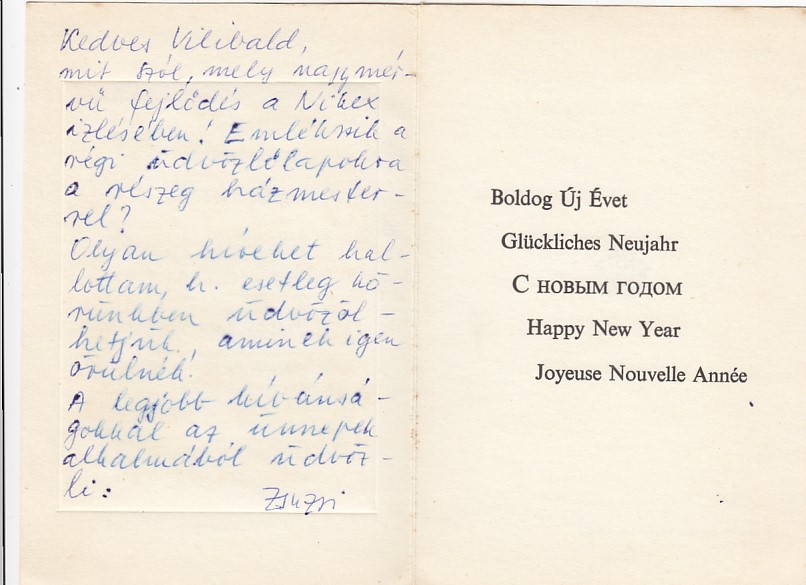 Kedves Vilibald,
mit szól, mely nagymér-
vű fejlődés a Nikex
izlésében! Emlékszik a
régi üdvözlőlapokra
a részeg házmester-
rel?
Olyan híreket hal-
lottam, h. esetleg kö-
rünkben üdvözöl-
hetjük, aminek igen
örülnék!
A legjobb kívánsá-
gokkal az ünnepek
alkalmából üdvöz-
li:
Zsuzsi
Boldog Új Évet
Glückliches Neujahr
С новым годом
Happy New Year
Joyeuse Nouvelle Année